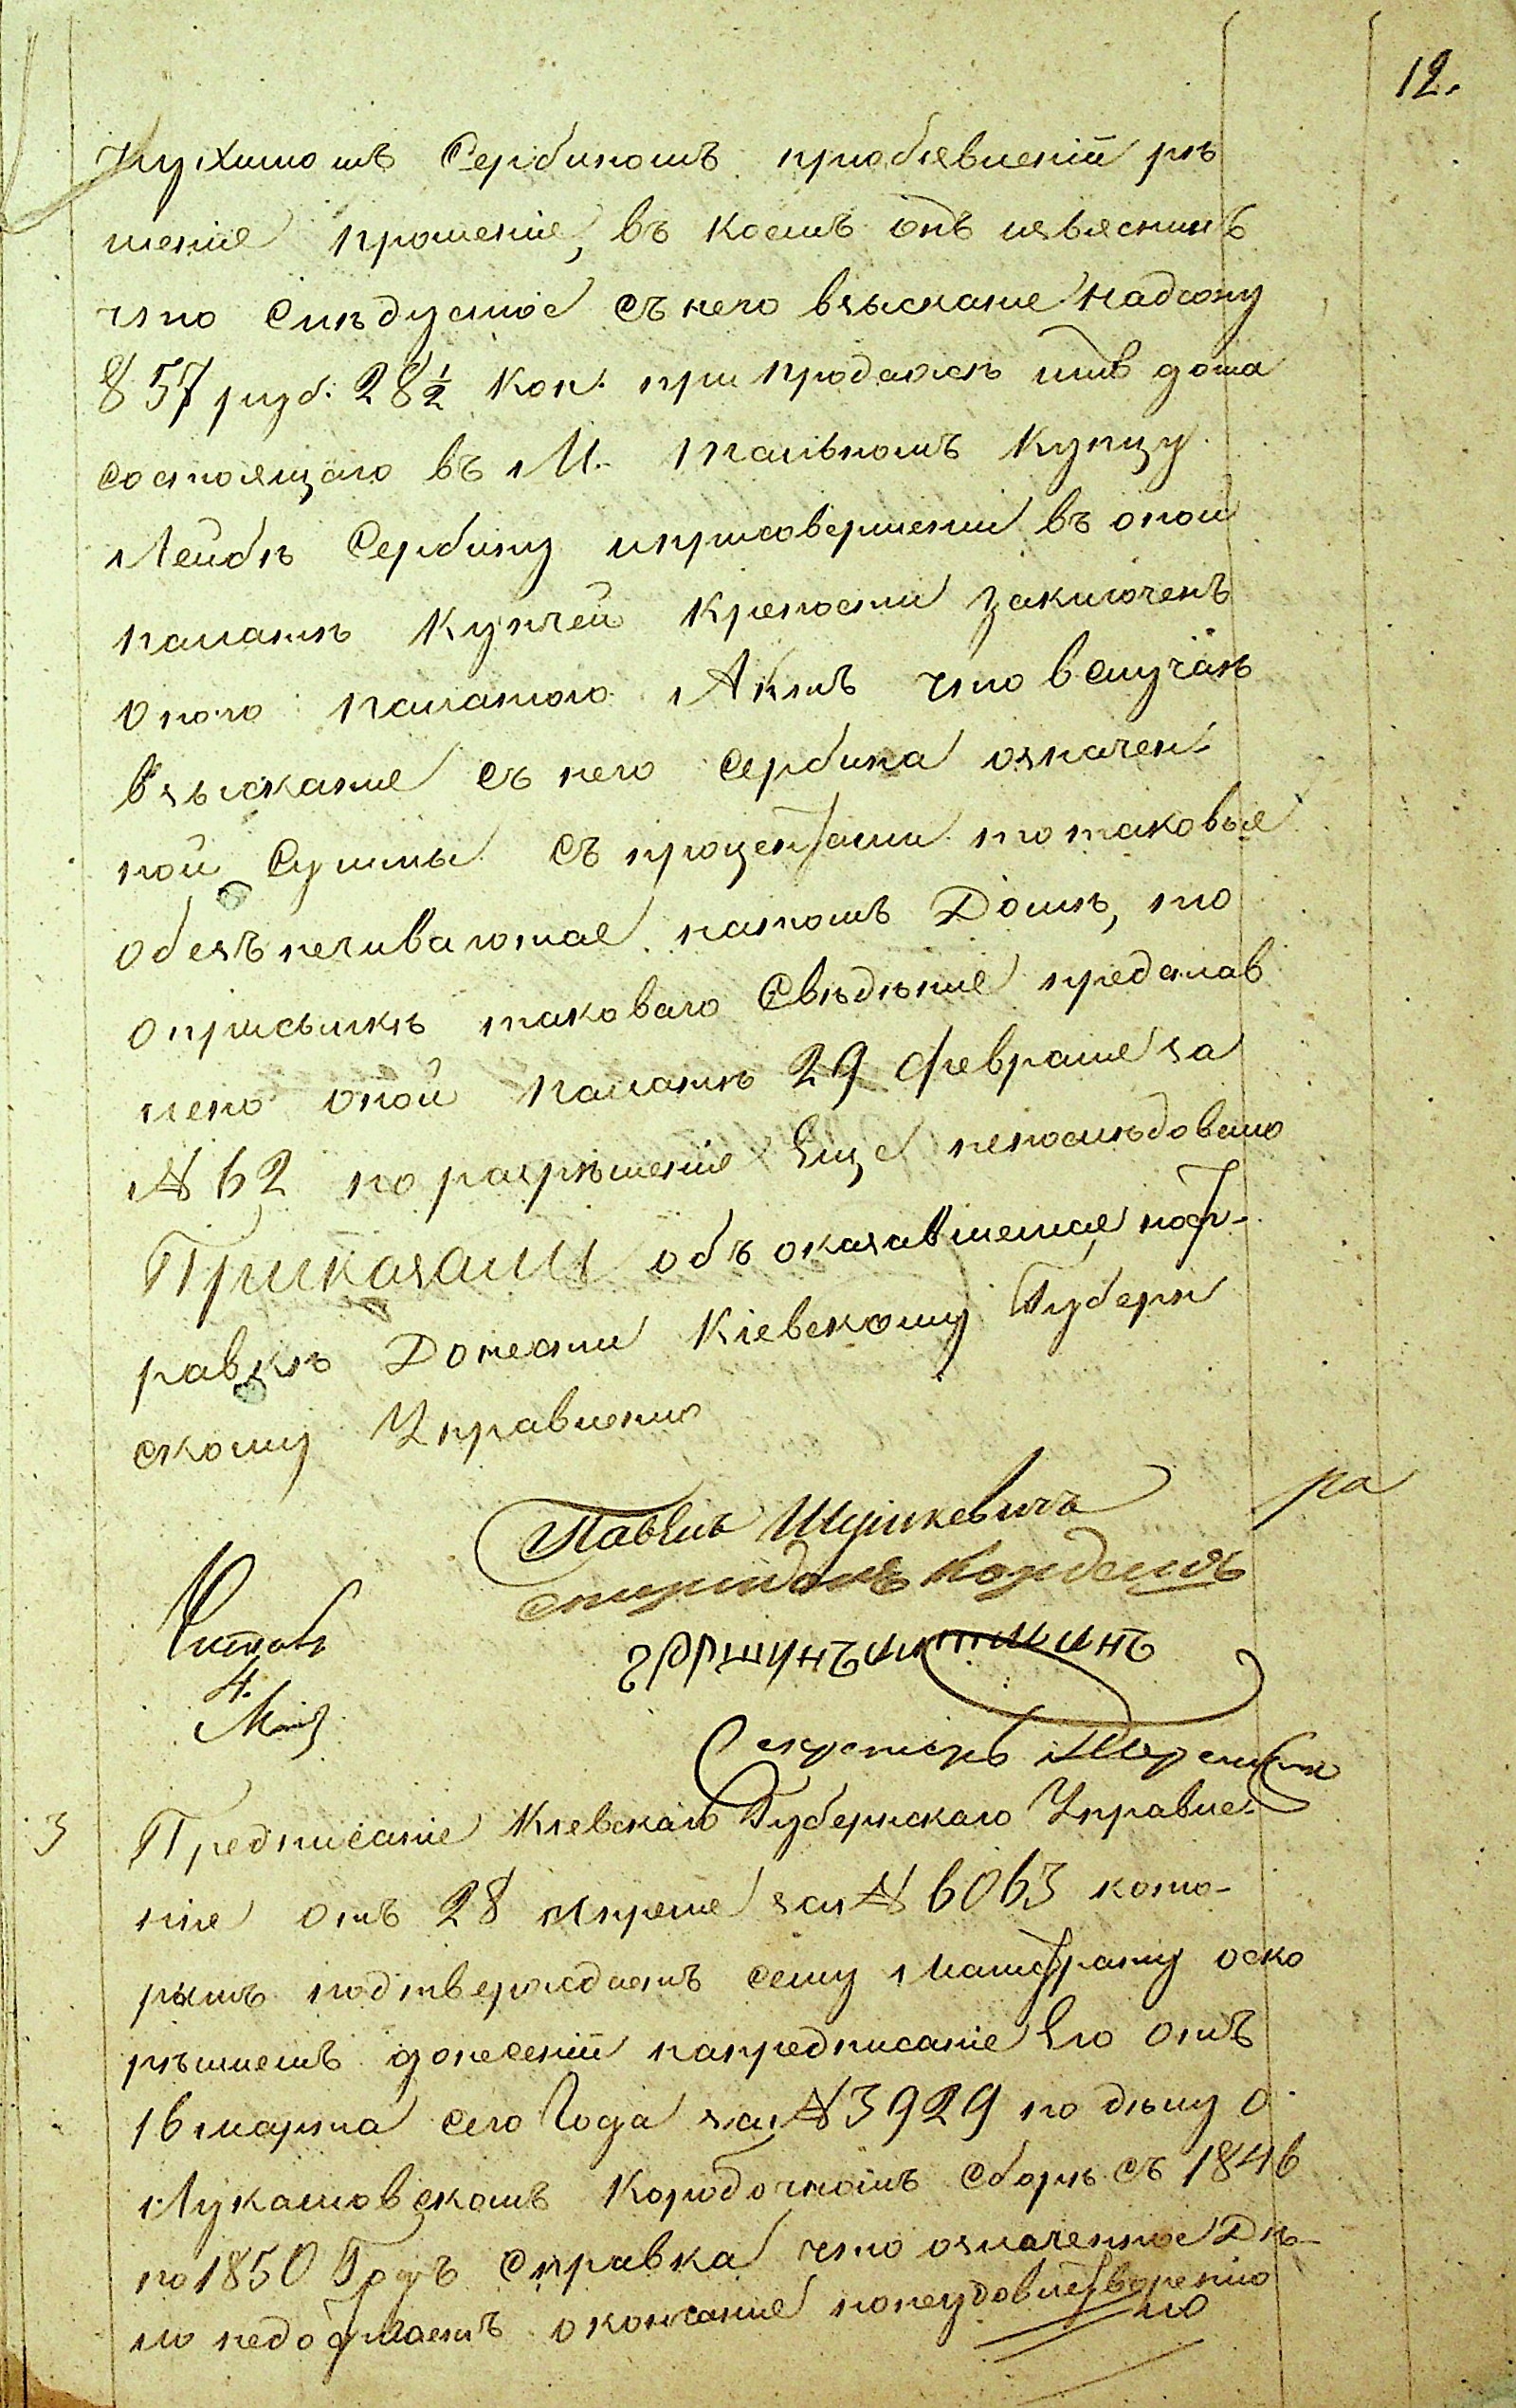 12.
Нухимомъ Сербиномъ приобъявленіи рѣ
шеніе прошеніе, въ коемъ онъ изъяснилъ
что слѣдуемое съ него взысканіе Надсону
857 руб. 28½ коп. при продажѣ имъ дома
состоящаго въ М. Тальномъ купцу
Лейбѣ Сербину иприсовершеніи въ оной
палатѣ купчей крепости заключенъ
оного палатою Актъ что вслучаѣ
взысканіе съ него Сербина означен-
ной Суммы съ процентами то таковые
обезъпечиваютсе натомъ Домѣ, но
оприсылкѣ таковаго Свѣдѣніе представ
лено оной палатѣ 29 феврале за
№ 62 но разрѣшеніе Еще непослѣдовало
Приказали объ оказавшемсе поспр-
равкѣ Донести Кіевскому Губерн
скому Управленію
ра
Павелъ
Спиридонъ
Читалъ
4.
Маія
Секретарь
3
Предписаніе Кіевскаго Губернскаго Управле-
ніе отъ 28 Апреле за № 6063 кото-
рымъ подтверождаетъ сему Магистрату оско
рѣишемъ донесеніи напредписаніе Его отъ
16 марта сего Года за № 3929 по дѣлу о
Лукашовскомъ коробочномъ сборѣ съ 1846
по 1850 Годъ Справка что означенное Дѣ-
ло недостигаетъ окончание понеудовлетворенію
по